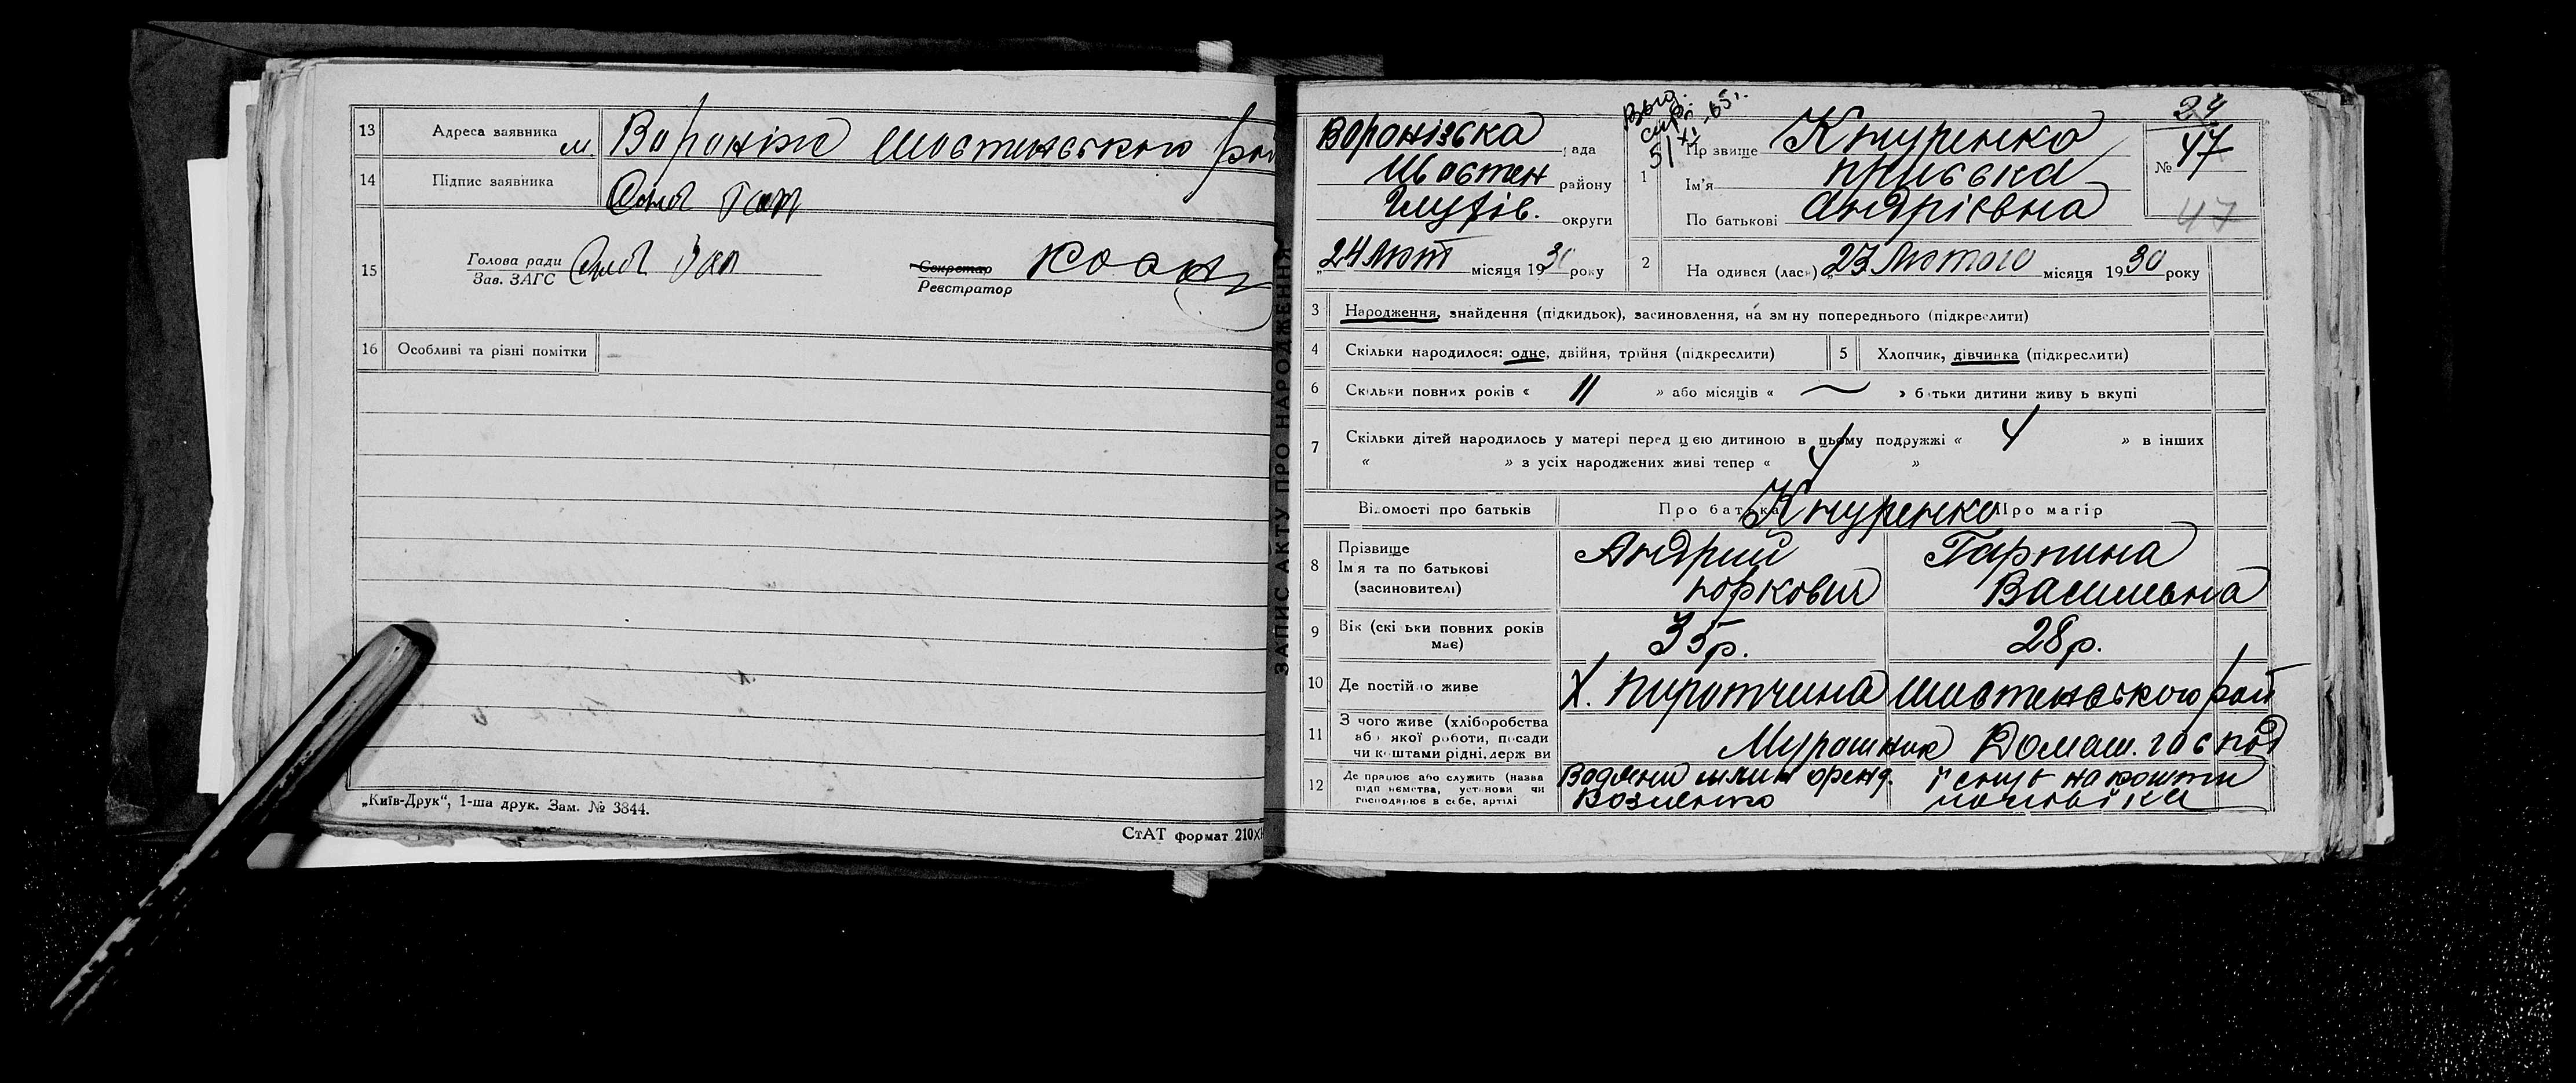 13 Адреса заявника м. Вороніж Шостенського рай
14 Підпис заявника
15 Голова ради
Зав. ЗАГС
Секретар
Реєстратор
16 Особливі та різні помітки —
„Київ-Друк“, 1-ша друк. Зам. № 3844.
СтАТ формат 210х
ЗАПИС АКТУ ПРО НАРОДЖЕННЯ
Выд.
5/XI-65 г.
24
Воронізька рада
Шостен району
Глухів. округи
„24 Лют місяця 1930 року
1 Прізвище Кнуренко
Ім’я Приська
По батькові Андрієвна
№ 47
47
2 Народився (лась) „23 Лютого місяця 1930 року
3 Народження, знайдення (підкидьок), засиновлення, на зміну попереднього (підкреслити)
4 Скільки народилося: одне, двійня, трійня (підкреслити)
5 Хлопчик, дівчинка (підкреслити)
6 Скільки повних років « 11 » або місяців « — » батьки дитини живуть вкупі
7 Скільки дітей народилось у матері перед цією дитиною в цьому подружжі « 4 » в інших
« » з усіх народжених живі тепер « 4 »
Відомості про батьків Про батька Про матір
Кнуренко
8 Прізвище
Ім’я та по батькові
(засиновителі)
Андрий
Юркович
Гарпина
Васильвна
9 Вік (скільки повних років має) 35 р. 28 р.
10 Де постійно живе Х. Пиротчина Шостенського рай
11 З чого живе (хліборобства
або якої роботи, посади
чи коштами рідні, держави
Мурошник Домаш. господ
12 Де працює або служить (назва
підприємства, установи чи
господарює в себе, артілі
Водяни млин оренд.
Возленко
існує на кошти
чоловіка